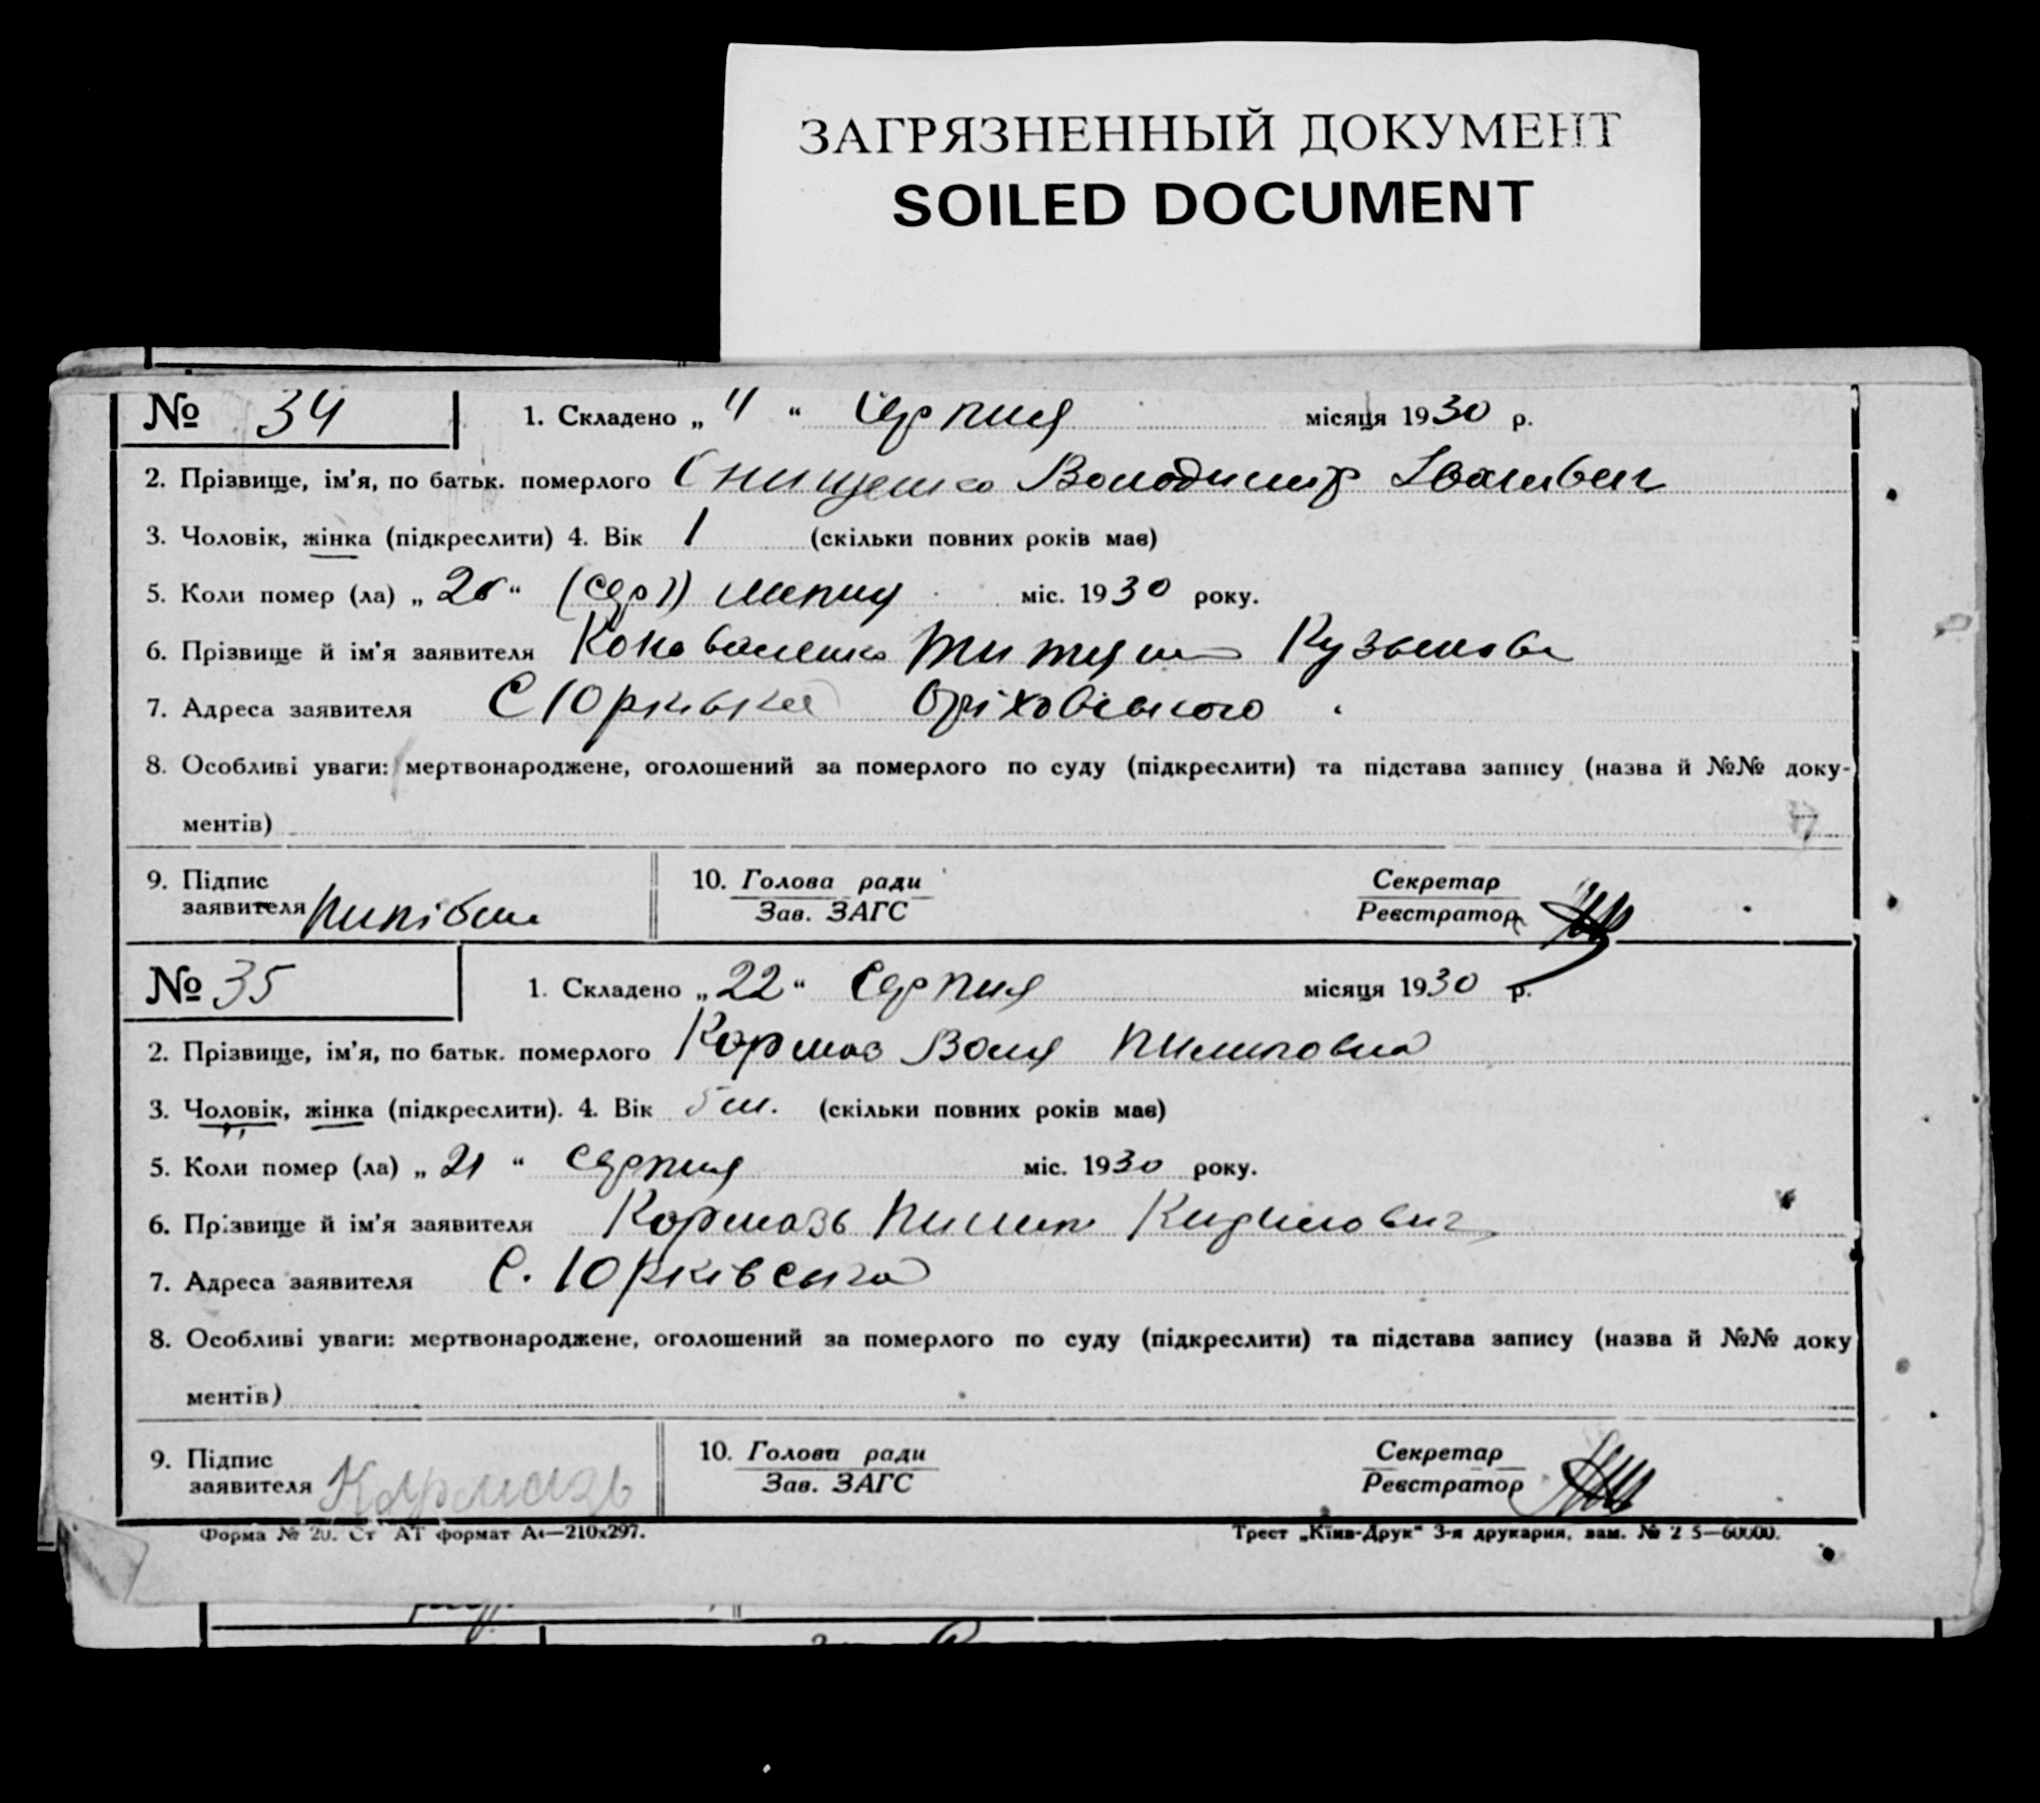 ЗАГРЯЗНЕННЫЙ ДОКУМЕНТ
SOILED DOCUMENT
№ 34
1. Складено „ 4 “ Серпня місяця 1930 р.
2. Прізвище, ім'я, по батьк. померлого Онищенко Володимир Іванович
3. Чоловік, жінка (підкреслити) 4. Вік 1 (скільки повних років має)
5. Коли помер (ла) „ “ липня міс. 1930 року.
6. Прізвище й ім'я заявителя Коноваленко
7. Адреса заявителя С Юрківка Оріховського
8. Особливі уваги: мертвонароджене, оголошений за померлого по суду (підкреслити) та підстава запису (назва й №№ доку-
ментів)
9. Підпис
заявителя
10. Голова ради
Зав. ЗАГС
Секретар
Реєстратор
№ 35
1. Складено „ 22 “ Серпня місяця 1930 р.
2. Прізвище, ім'я, по батьк. померлого Кормаз Воля Пилиповна
3. Чоловік, жінка (підкреслити). 4. Вік 5 м. (скільки повних років має)
5. Коли помер (ла) „ 21 “ серпня міс. 1930 року.
6. Прізвище й ім'я заявителя Кормазь Пилип
7. Адреса заявителя С. Юрківська
8. Особливі уваги: мертвонароджене, оголошений за померлого по суду (підкреслити) та підстава запису (назва й №№ доку
ментів)
9. Підпис
заявителя Кармазь
10. Голова ради
Зав. ЗАГС
Секретар
Реєстратор
Форма № 20. Ст АТ формат А4—210х297.
Трест „Київ-Друк“ 3-я друкарня, зам. №